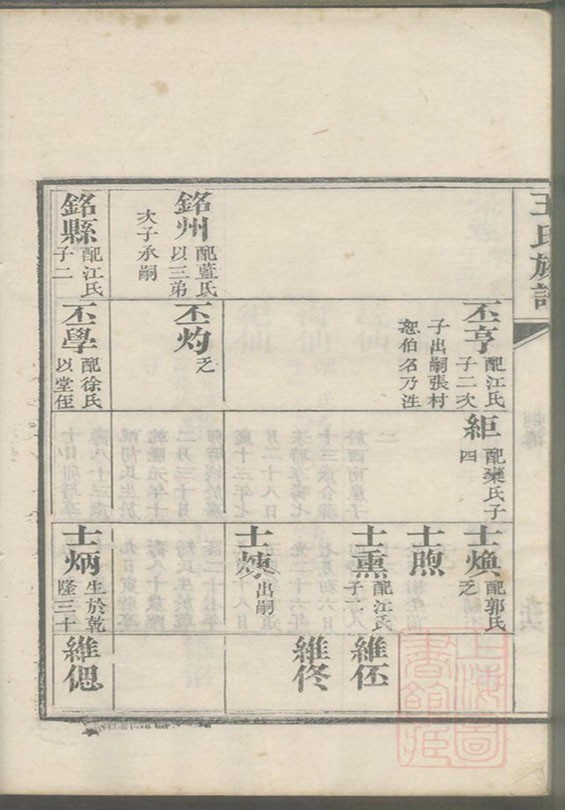 王氏族譜
丕亨 配江氏
子二次
子出嗣張村
恕伯名乃注
組 配欒氏子
四
士煥 配郭氏
乏
士煦
士熏 配江氏
子二
維佟
士煉 出嗣
銘州 配藍氏
以三弟
次子承嗣
丕灼 乏
銘縣 配江氏
子二
丕學 配徐氏
以堂侄
士炳 生於乾
隆三十
維偲
上海圖書館藏